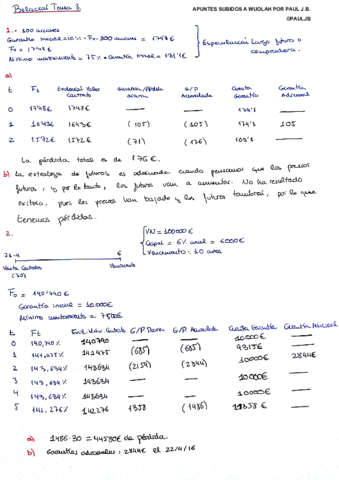 Relación Tema 3
APUNTES SUBIDOS A WUOLAH POR PAUL J.B.
@PAULJB
1. · 100 acciones
Garantía inicial = 10% · F₀ · 100 acciones = 174'8€
F₀ = 1748€
Mínimo mantenimiento = 75% · Garantía inicial = 131'1€
Especulación larga futuro o compradora.
a)
t Ft Evolución Valor Contrato Ganancia/Pérdida diaria G/P Acumulada Cuenta Garantía Garantía Adicional
0 1748€ 1748€ — — 174'8 —
1 1643€ 1643€ (105) (105) 174'8 105
2 1572€ 1572€ (71) (176) 103'8 —
La pérdida total es de 176€.
b) La estrategia de futuros es adecuada cuando pensamos que los precios
futuros, y por lo tanto, los futuros van a aumentar. No ha resultado
exitosa, pues los precios han bajado y los futuros también, por lo que
tenemos pérdidas.
2.
VN = 100000€
Cupón = 6% anual = 6000€
Vencimiento: 10 años
21-4
6
Venta Contratos
(30)
Vencimiento
F₀ = 140'740€
Garantía inicial = 10.000€
Mínimo mantenimiento = 7500€
t Ft Evol. Valor Contrato G/P Diaria G/P. Acumulada Cuenta Garantía Garantía Adicional
0 140,790% 140790 — — 10.000€ —
1 141,475% 141475 (685) (685) 9315€ —
2 143,634% 143634 (2159) (2844) 10000€ 2844€
3 143,634% 143634 — — 10000€ —
4 143,634% 143634 — — 10000€ —
5 142,276% 142276 1358 (1486) 11358€ —
a) 1486·30 = 44580€ de pérdida
b) Garantías adicionales: 2844€ el 22/4/16